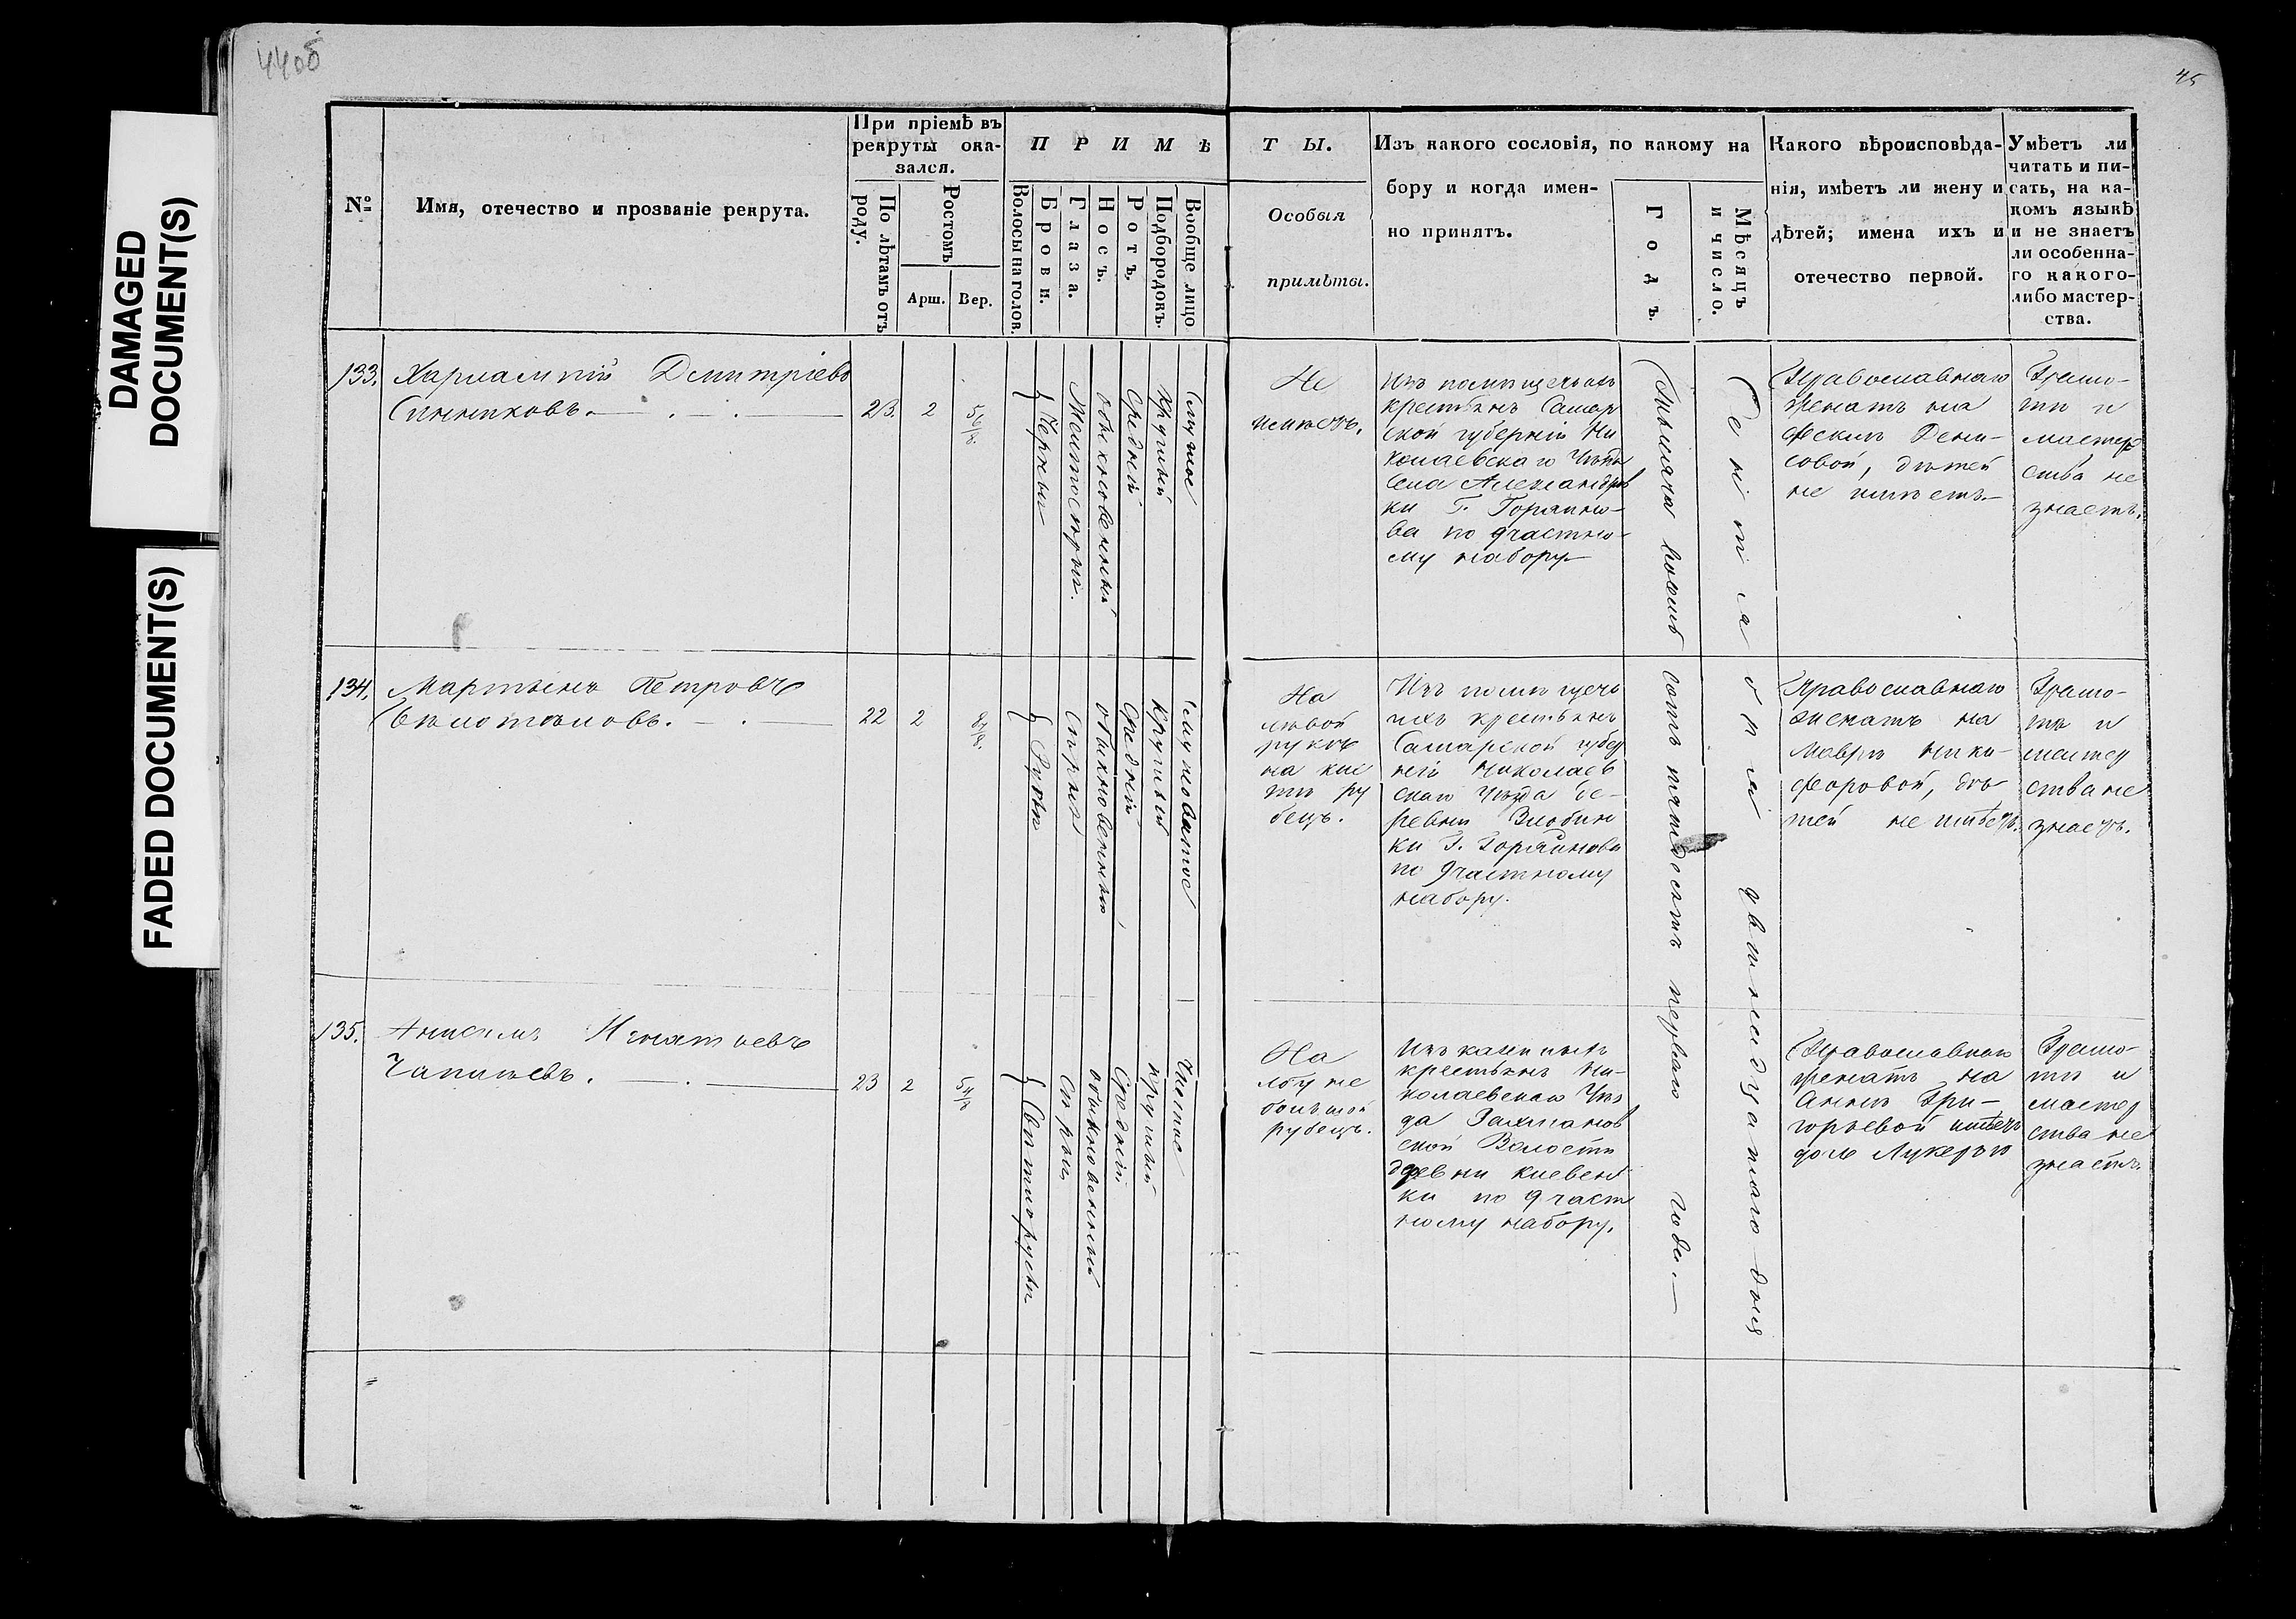 44об
45
DAMAGED
DOCUMENT(S)
FADED DOCUMENT(S)
№
Имя, отечество и прозваніе рекрута.
При пріемѣ въ
рекруты ока-
зался.
По лѣтамъ отъ
роду.
Ростомъ
Арш.
Вер.
ПРИМѢ
Волосы на голов.
Брови.
Глаза.
Носъ.
Ротъ.
Подбородокъ.
Вообще лицо
ТЫ.
Особыя
примѣты.
Изъ какого сословія, по какому на
бору и когда имен-
но принятъ.
Годъ.
Мѣсяцъ
и число.
Какого вѣроисповѣда-
нія, имѣетъ ли жену и
дѣтей; имена ихъ и
отечество первой.
Умѣетъ ли
читать и пи-
сать, на ка-
комъ языкѣ
и не знаетъ
ли особенна-
го какого-
либо мастер-
ства.
133.
Харлампій Дмитріевъ
Синниковъ.
23.
2
5 6/8.
Черныя
Желтосѣрые.
обыкновенный
Средній
Круглый
Смуглое
Не
имѣетъ.
Изъ помѣщечьихъ
крестьянъ Самар
ской губерніи Ни
колаевскаго Уѣзда
Села Александров
ки Г. Горяино-
ва по 9 частно-
му набору
Тысяча восемь сотъ пятдесятъ перваго года.
Сентября двенадцатаго дня
Православнаго
женатъ на
Феклѣ Дени-
совой, дѣтей
не имѣетъ.
Грамо-
ты и
мастер
ства не
знаетъ.
134.
Мартынъ Петровъ
22
2
8 7/8.
Русыя
Сѣрые
обыкновенный
Средній
Круглый
Смугловатое
На
лѣвой
рукѣ
на кис
ти ру
бецъ.
Изъ помѣщечь
ихъ крестьянъ
Самарской губер
ніи Николаев
скаго Уѣзда де-
ревни Злобин
ки Г. Горяинова
по 9 частному
набору.
Православнаго
женатъ на
Маврѣ Ники-
форовой, дѣ
тей не имѣетъ.
Грамо-
ты и
мастер
ства не
знаетъ.
135.
Анисимъ Игнатьевъ
23
2
5 4/8
Свѣтлорусыя
Сѣрые
обыкновенный
Средній
Круглый
Чистое
На
лбу не
большой
рубецъ.
Изъ казенныхъ
крестьянъ Ни-
колаевскаго Уѣз
да
ской Волости
деревни
ки по 9 част
ному набору.
Православнаго
женатъ на
Аннѣ Гри-
горьевой имѣетъ
дочь Лукерью
Грамо-
ты и
мастер
ства не
знаетъ.